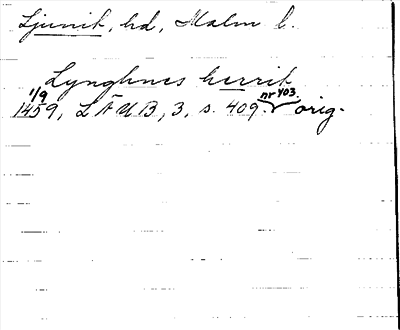 Ljunit, hd, Malm l.
Lynghnes herrit
1/9 nr 403.
1459, LÄUB, 3, s. 409. orig.